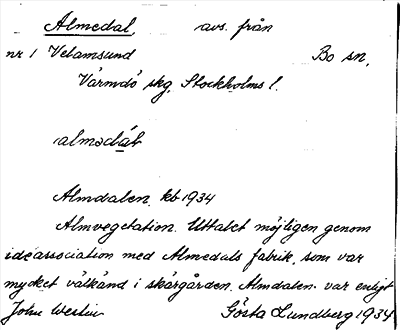 Almedal, avs. från
nr 1 Velamsund Bo sn,
Värmdö skg, Stockholms l.
almedáł
Almdalen, kb 1934
Almvegetation. Uttalet möjligen genom
idéassociation med Almedals fabrik, som var
mycket välkänd i skärgården. Almdalen var enligt
John Westin Gösta Lundberg 1934